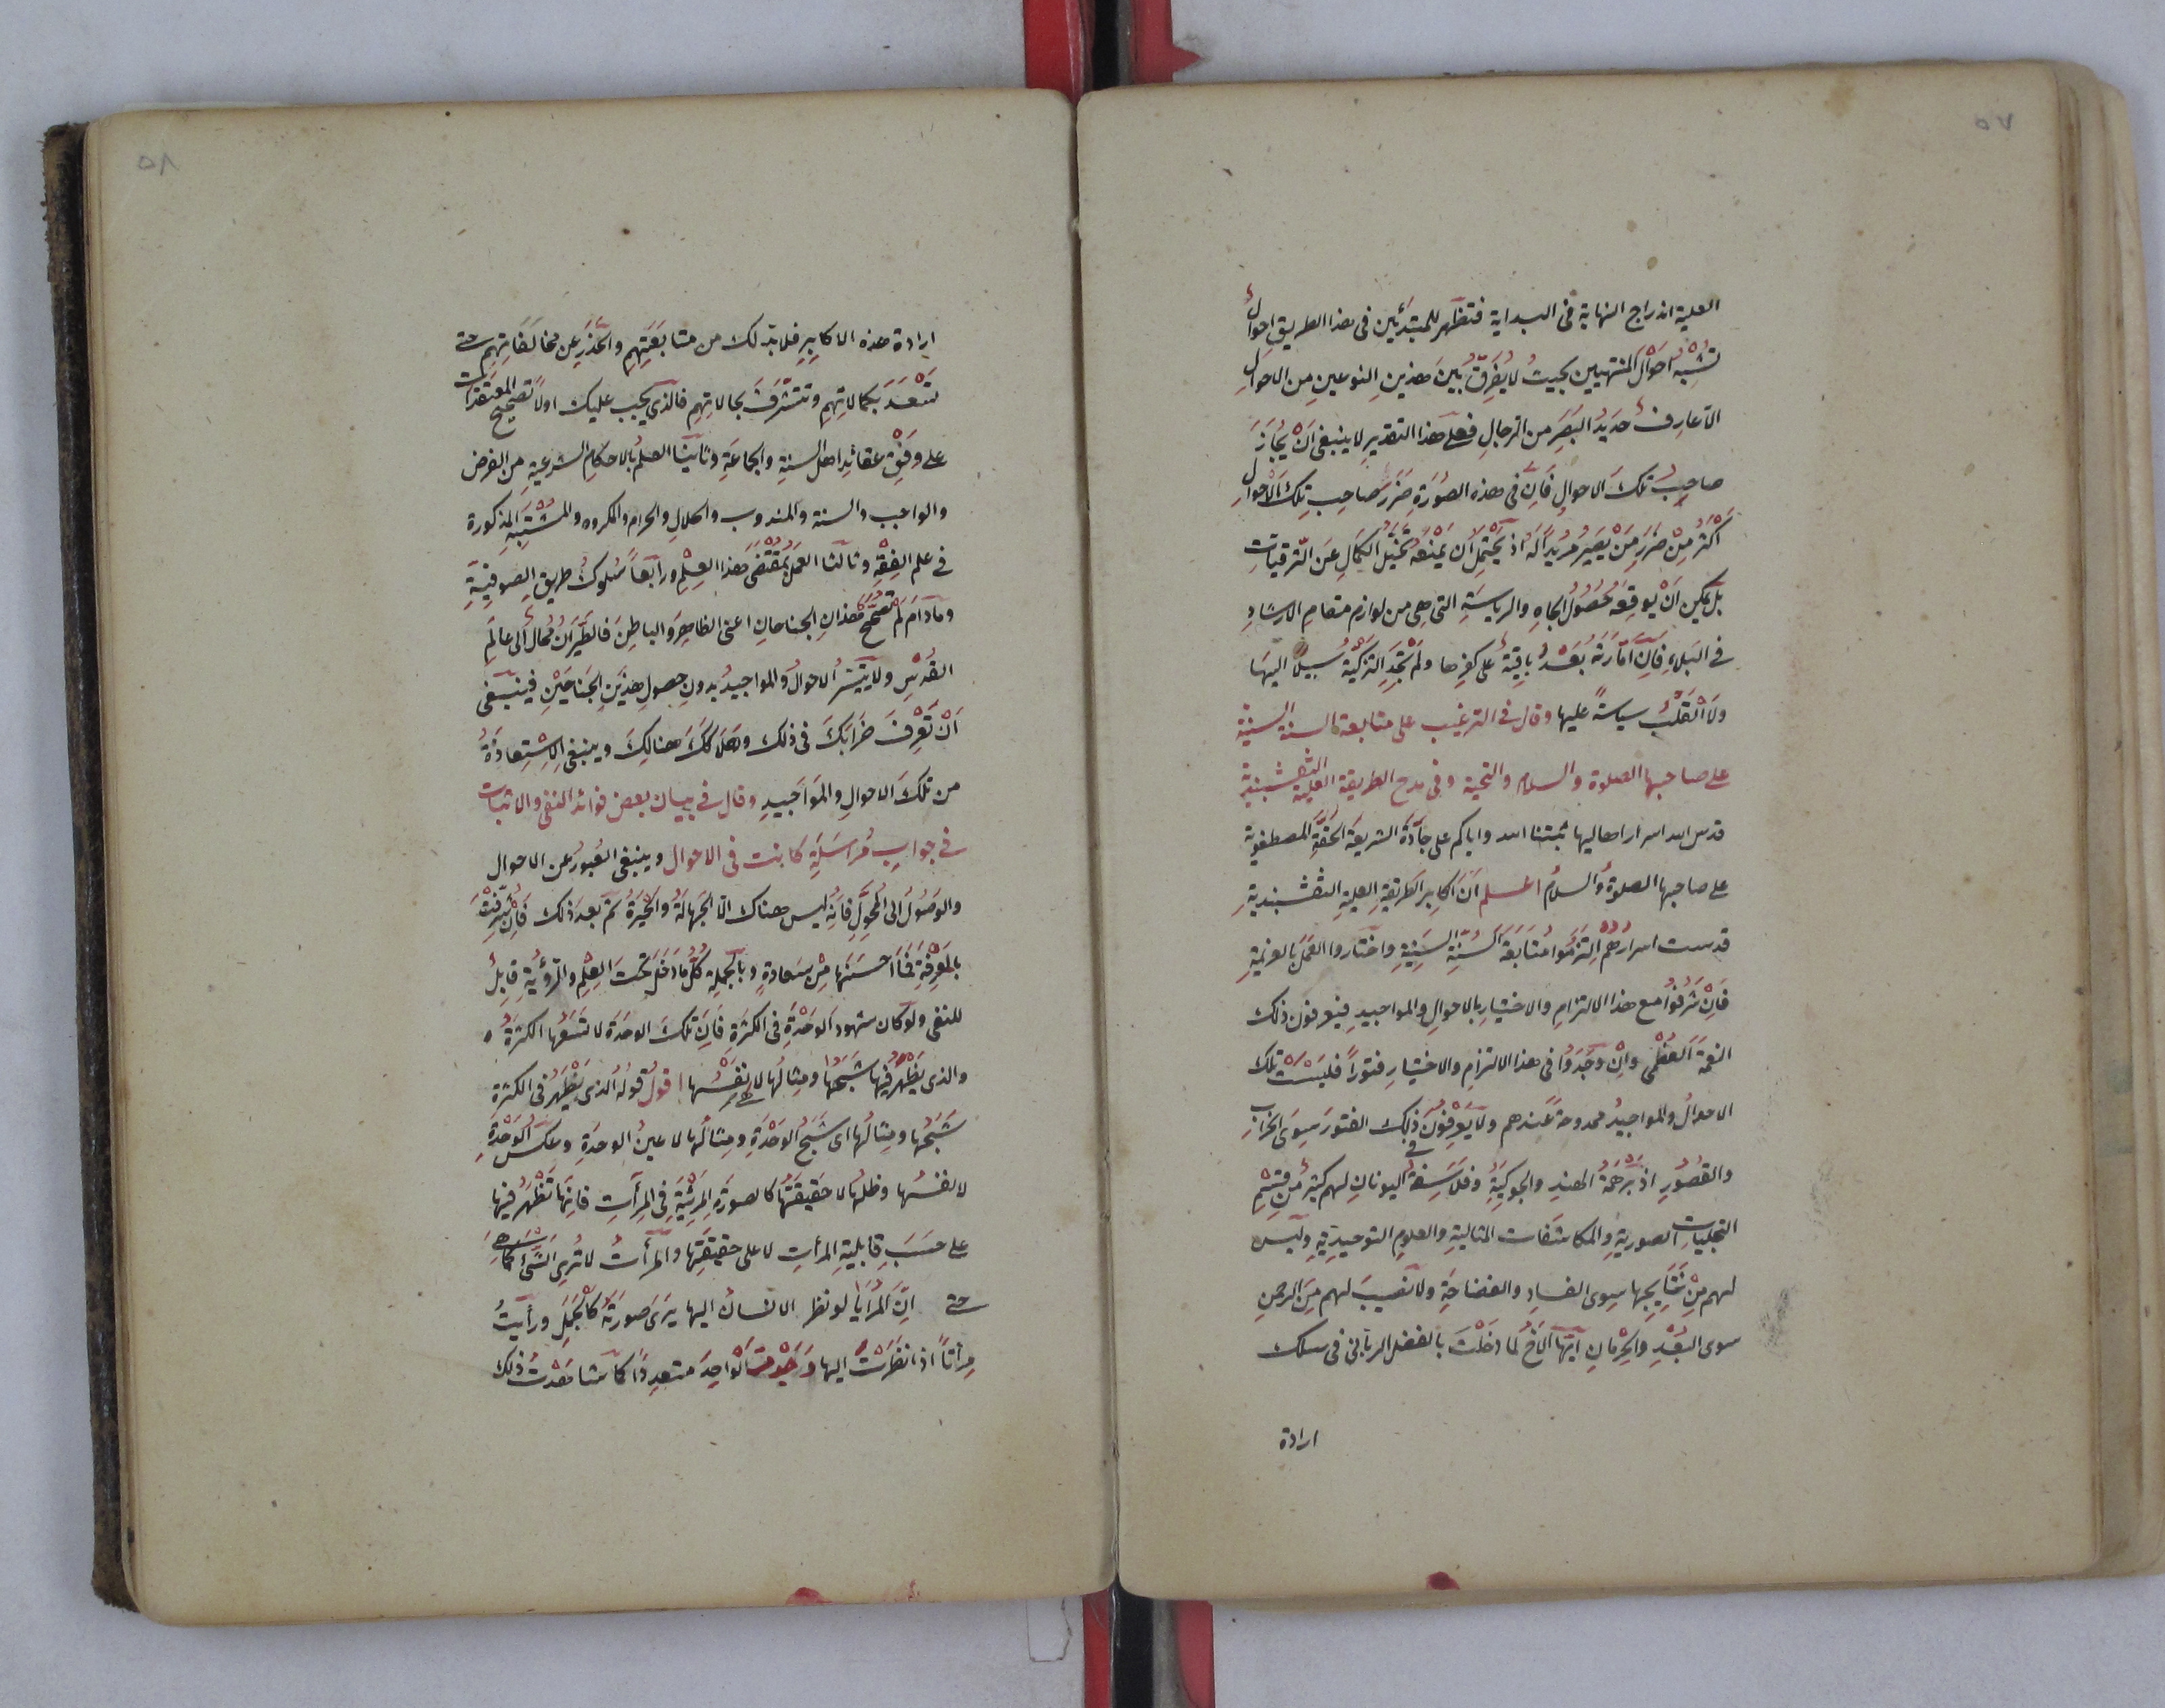 ٥٧
العلية اندراج النهاية فى البداية فتظهر للمبتدئين فى هذا الطريق احوال
تُشْبِهُ احْوالَ المنتهيين بحيثُ لا يُفَرَّقُ بَيْنَ هذينِ النوعينِ مِن الاحوالِ
الّا عارِفٌ حَدِيدُ البَصَرِ من الرجالِ فعلى هذا التقديرِ لا ينبغى اَنْ يُجازَ
صاحِبُ تلكَ الاحوالِ فَاِنَّ فى هذه الصُّورَةِ ضَرَرَ صَاحِبِ تِلكَ الاحوالِ
اَكْثَرُ مِنْ ضَرَرِ مَنْ يَصِيرُ مُرِيداً لَهُ اذ يَحْتَمِلُ اَن يَمْنَعَهُ تَخَيُّلُ الكَمَالِ عَنِ التّرقيات
بَلْ يمكن اَنْ يُوقِعَهُ حُصُولُ الجاهِ والرياسَةِ التى هى من لوازم مقامِ الارشادِ
فى البَلاءِ فَاِنَّ اَمّارَتَهُ بَعْدُ باقِيَةٌ على كفرها ولَمْ تَجِدِ التزكيَةُ سبيلاً اليهَا
ولَا القَلْبُ سياسةً عليها وقال فى الترغيب على متابعة السنة السنية
على صاحبها الصلوة والسلام والتحية وفى مدح الطريقة العلية النقشبندية
قدس الله اسرار اهاليها ثبتنا الله واياكم على جادّةِ الشريعة الحَقَّةِ المصطفوية
على صاحبها الصلوةُ والسلامُ اعلم اَنّ اكابِرَ الطريقةِ العليةِ النقشبنديةِ
قدست اسرارُهُمْ اِلتَزَمُوا مُتَابَعَةَ السُنَّةِ السَنِيةِ واختاروا العَمَلَ بالعزيمةِ
فَاِنْ شَرُفُوا مع هذا الالتزامِ والاختيارِ بالاحوالِ والمواجيدِ فيعرفون ذلك
النعمة العُظْمى واِنْ وَجَدُوا فى هذا الالتزامِ والاختيارِ فتوراً فليسَتْ تلك
الاحوالُ والمواجيدُ ممدوحة عندهم ولا يَعْرِفُونَ فى ذلِك الفتورَ سِوَى الخرابِ
والقُصُورِ اذ بَرَهمَةُ الهندِ والجوكيةُ وفلاسِفَةُ اليونانِ لهم كثيرٌ مِن قِسْمِ
التجلياتِ الصوريةِ والمكاشفات المثاليةِ والعلومِ التوحيديّةِ وليس
لهم مِنْ نَتَايِجِها سِوى الفسادِ والفضاحَةِ ولا نصيبَ لهم مِنَ الرحمنِ
سوى البُعْدِ والحِرْمانِ ايّها الاخُ لما دخَلْتَ بالفضل الربّانى فى سلك
ارادة
٥٨
ارادة هذه الاكابِرِ فلا بدّ لك من متابَعَتِهِم والحَذَرِ عن مخالفاتِهِم حتى
تَسْعَدَ بكمالاتِهِم وتتشرّفَ بحالاتِهِم فالذى يجب عليك اولاً تصحيح المعتقدات
على وَفْقِ عقائِدِ اهل السنةِ والجماعَةِ وثانيًا العلمُ بالاحكامِ الشرعيةِ من الفرض
والواجب والسنة والمندوب والحلالِ والحرام والمكروه والمشتَبِهِ المذكورة
فى علم الفِقْهِ وثالثا العَمَلُ بِمُقْتَضَى هذا العِلْمِ ورابَعاً سُلوكُ طريقِ الصوفيّةِ
ومادَامَ لم تصحَّحْ هذانِ الجناحانِ اعنى الظاهِرَ والباطِنَ فالطَيَرانُ مُحال الى عالَمِ
القُدْسِ ولا يتيسّرُ الاحوالُ والمواجيدُ بدونِ حصولِ هذَينِ الجَناحَيْنِ فينبغى
اَنْ تَعْرِفَ خَرَابَكَ فى ذلك وهَلاككَ هنالِكَ وينبغى الاِسْتِعاذَةُ
من تلكَ الاحوالِ والمَوَاجيدِ وقال فى بيان بعض فوائد النفى والاثبات
فى جوابِ مُرَاسَلَةٍ كانت فى الاحوال وينبغى العُبورُ عن الاحوال
والوصُولُ الى المُحَوِّلِ فَاِنّه ليس هناك الّا الجَهالَةُ والحَيْرَةُ ثم بعد ذلك فَاِنْ شُرِّفْتَ
بالمَعْرِفَةِ فمَا اَحْسَنَها مِنْ سعادةٍ وبالجملِة كلُّ ما دَخَلَ تَحْتَ العِلْمِ والرُؤْيةِ قابِلٌ
للنفى ولو كان شهودَ الوحْدَةِ فى الكثرَةِ فَاِنّ تلكَ الوحَدَةَ لا تَسَعُها الكثرةُ
والذى يَظْهَرُ فيها شَبَحُها ومِثالُها لا نَفْسُها اقولُ قولُهُ الذى يَظْهَرُ فى الكثرة
شَبَحُها ومِثالُها اى شَبَحُ الوَحْدَةِ ومِثالُها لا عينُ الوحدَةِ وعكسُ الوَحْدَةِ
لا نفسُها وظلُّها لا حَقِيقَتُها كالصورَةِ المرئِيَّةِ فى المِرآتِ فَاِنّها تَظْهَرُ فيها
على حَسَبِ قابِليةِ المرآتِ لا على حقيقَتِها والمرآتُ لا تُرِى الشَىْءَ كما هِىَ
حتى اِنّ المَرَايا لو نظر الانسانُ اليها يَرَى صورَتَهُ كالجَمَلِ ورأيتُ
مِرآتاً اذا نظَرْتُ اليها وَجَدْتُ الواحِدَ متعدِداً كما شاهَدْتُ ذلك